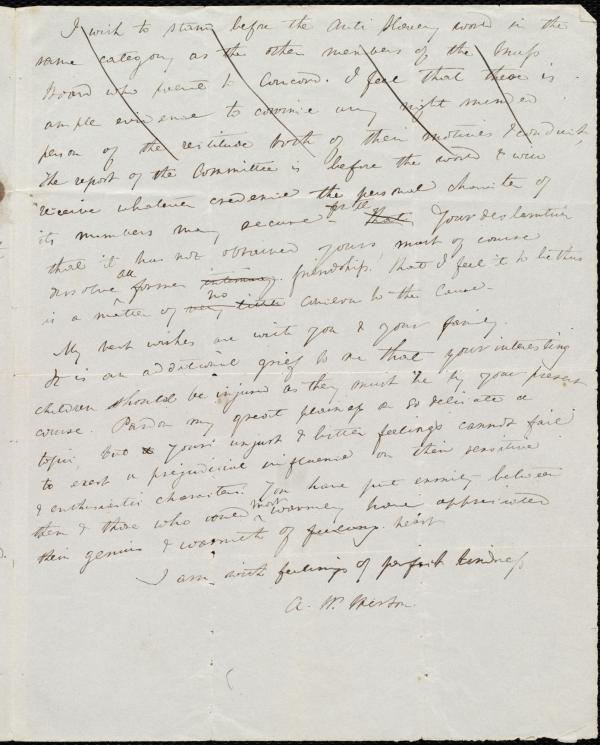 I wish to stand before the Anti Slavery world in the
same category as the other members of the Mass
Board who went to Concord. I feel that there is
ample evidence to convince any right minded
person of the rectitude both of their motives & conduct,
The report of the Committee is before the world & will
receive whatever credence the personal character of
its members may secure for it. That Your declaration
that it has not obtained yours, must of course
dissolve all former intimacy friendship, that I feel it to be thus
is a matter of very little no concern to the cause.
My best wishes are with you & your family.
It is an additional grief to me that your interesting
children should be injured as they must be by your present
course. Pardon my great plainness on so delicate a
topic, but your unjust & bitter feelings cannot fail
to exert a prejudicial influence on their sensitive
& enthusiastic characters. You have put enmity between
them & those who would most warmly have appreciated
their genius & warmth of feeling. heart
I am with feelings of perfect kindness
A. W. Weston.